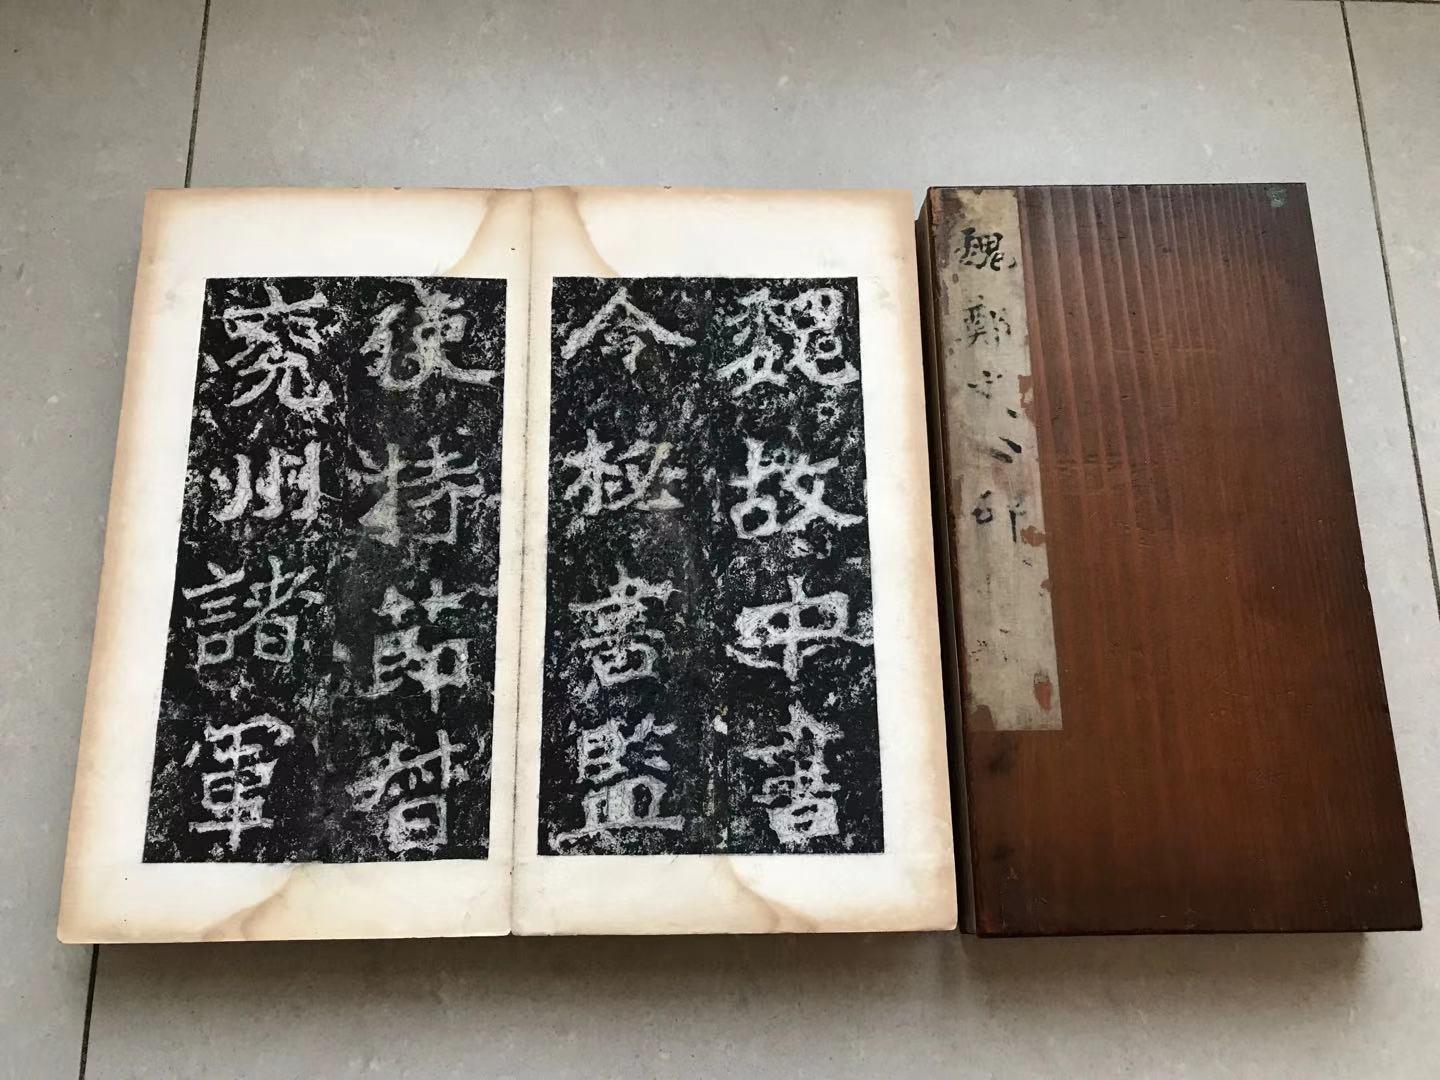 魏故中書
令秘書監
使持節督
兖州諸軍
魏鄭文公碑